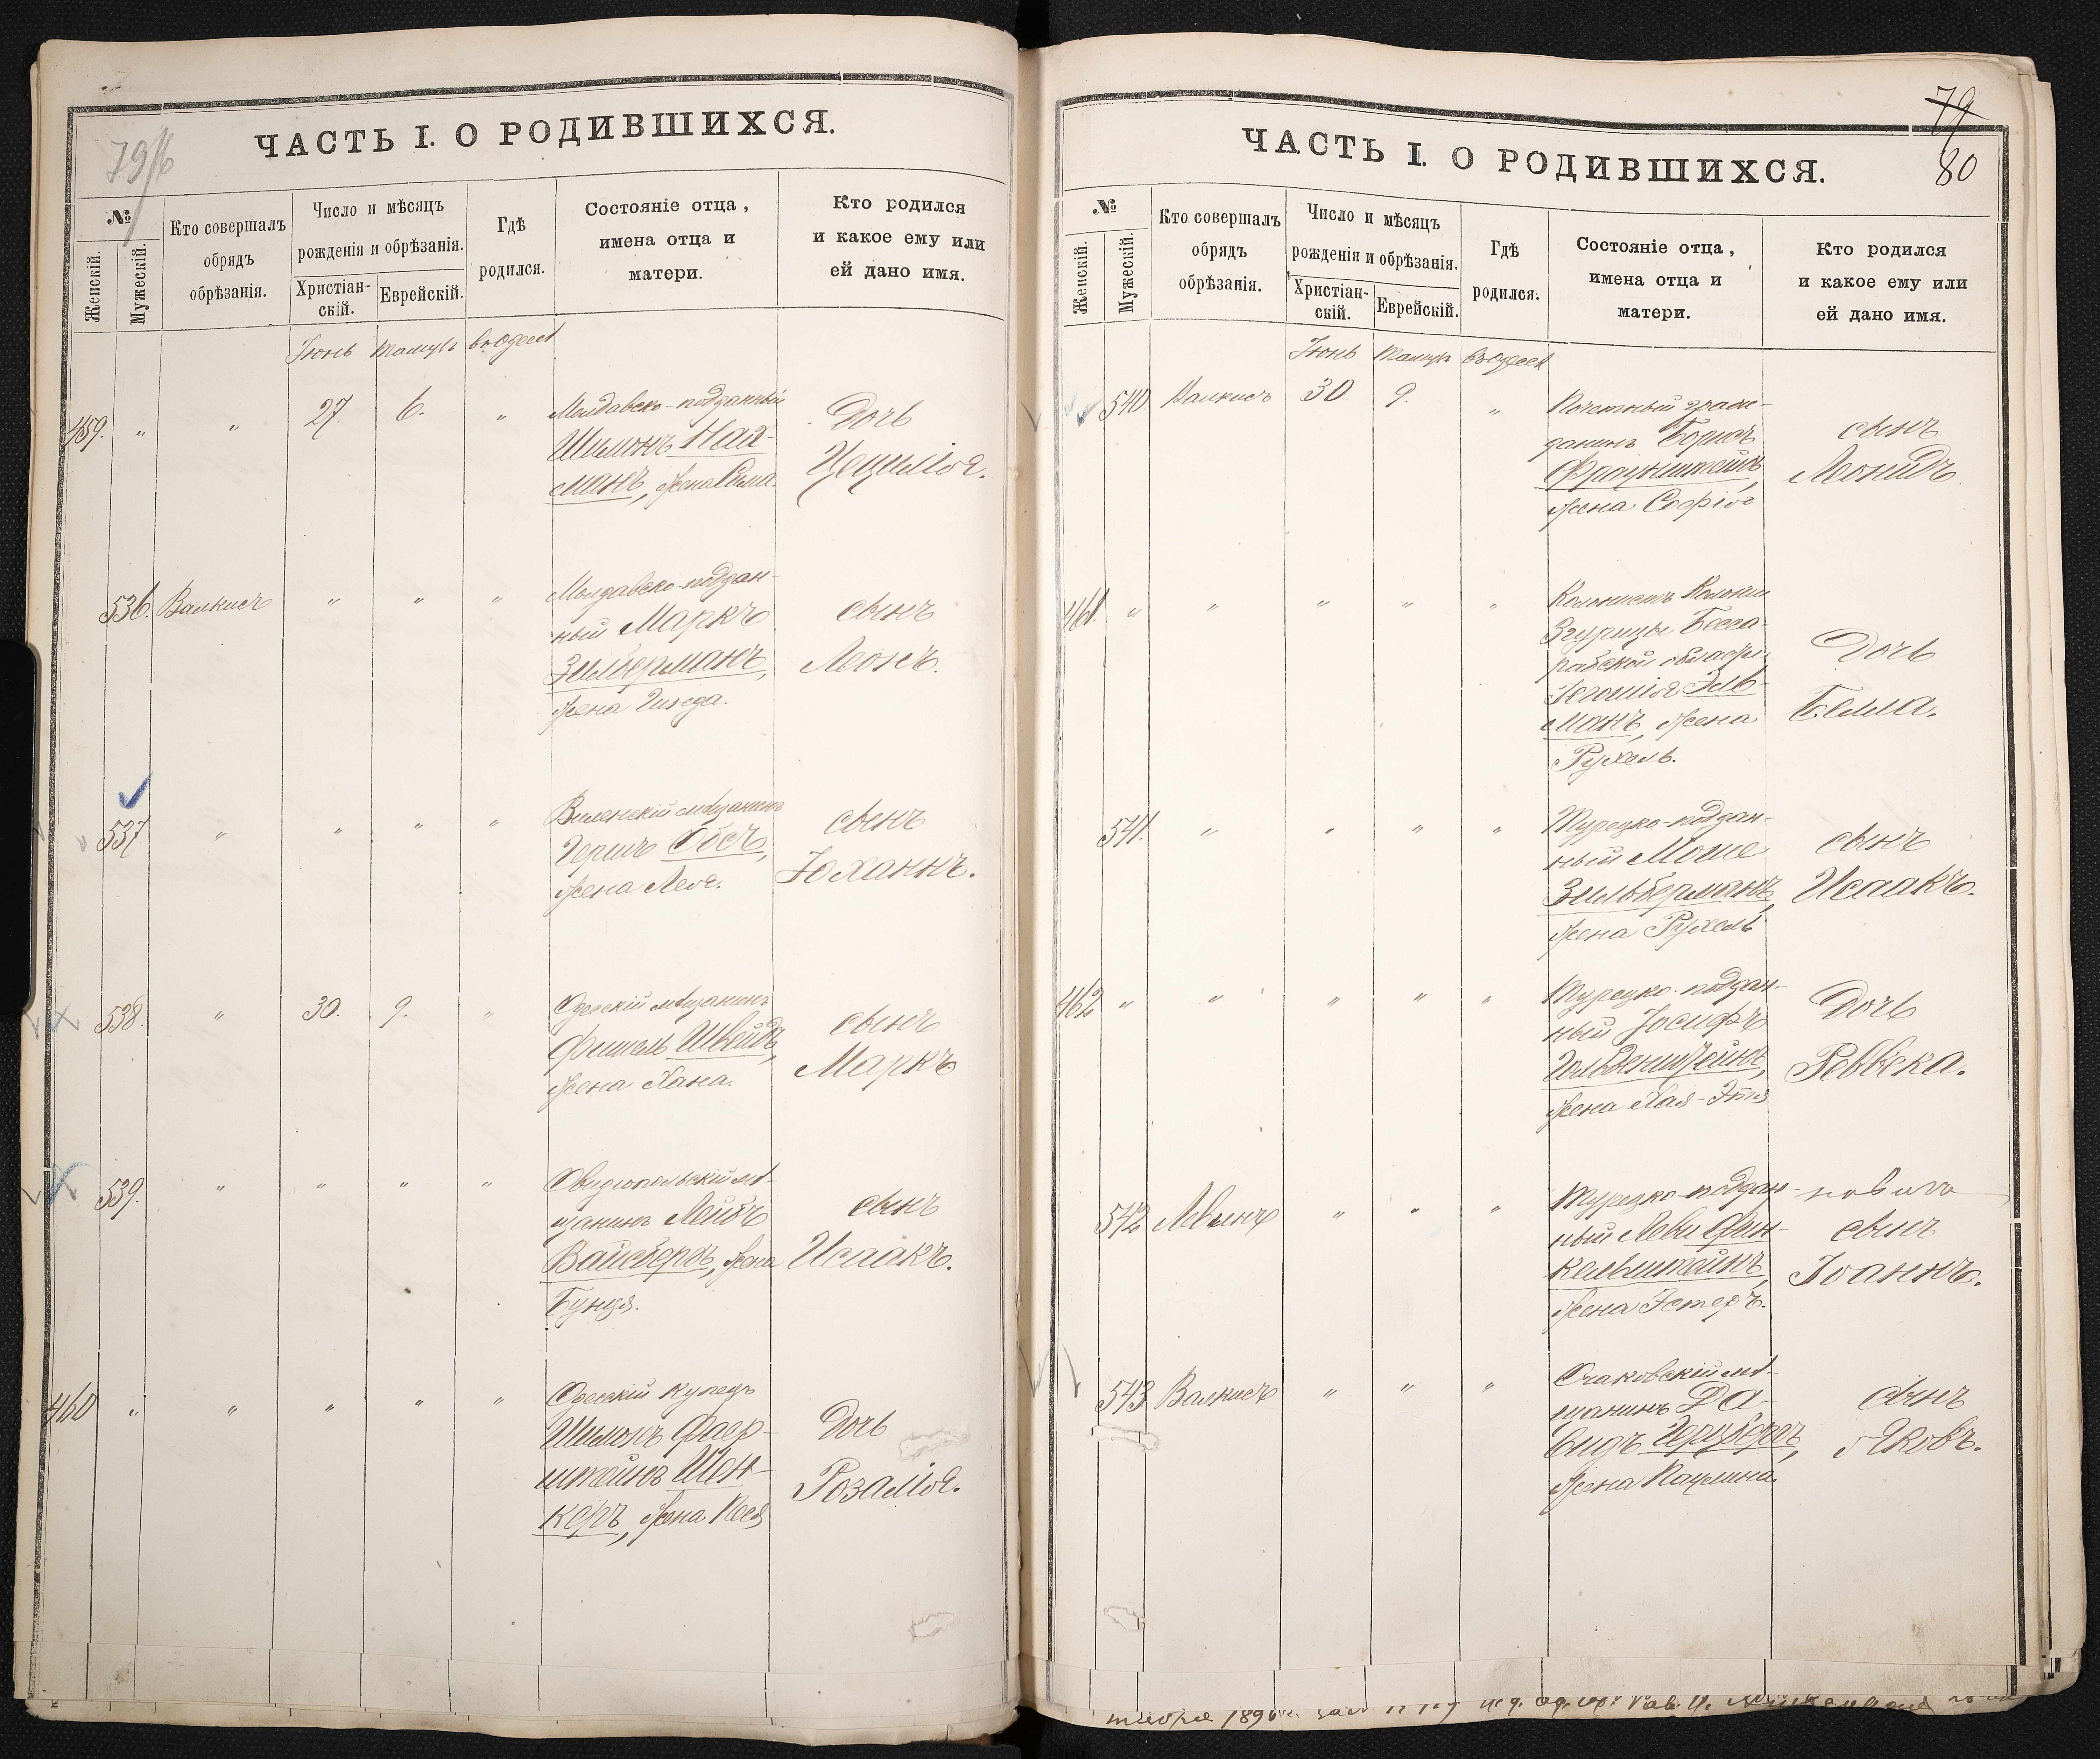 79/б
ЧАСТЬ I. О РОДИВШИХСЯ.
№
Женскій.
Мужескій.
Кто совершалъ
обрядъ
обрѣзанія.
Число и мѣсяцъ
рожденія и обрѣзанія.
Христіан-
скій.
Еврейскій.
Гдѣ
родился.
Состояніе отца,
имена отца и
матери.
Кто родился
и какое ему или
ей дано имя.
Іюнь Тамузъ въ Одессѣ
459. " " 27. 6. "
Молдавско-подданный
Шимонъ Нах-
манъ, жена Сима.
Дочь
Цецилія.
536. Валкисъ " " "
Молдавско-поддан-
ный Маркъ
Зильберманъ,
жена
сынъ
Леонъ.
537. " " " "
Виленскій мѣщанинъ
Гершъ Обсъ,
жена Лея.
сынъ
Юханнъ.
538. " 30. 9. "
Одесскій мѣщанинъ
Фишель Швейдъ,
жена Хана.
сынъ
Маркъ
539. " " " "
Овидіопольскій мѣ-
щанинъ Лейбъ
Вайсбергъ, жена
Бунця.
сынъ
Исаакъ.
460 " " " " "
Одесскій купецъ
Шимонъ Фаер-
штейнъ Шен-
керъ, жена
Дочь
Розалія.
79
80
ЧАСТЬ I. О РОДИВШИХСЯ.
№
Женскій.
Мужескій.
Кто совершалъ
обрядъ
обрѣзанія.
Число и мѣсяцъ
рожденія и обрѣзанія.
Христіан-
скій.
Еврейскій.
Гдѣ
родился.
Состояніе отца,
имена отца и
матери.
Кто родился
и какое ему или
ей дано имя.
Іюнь Тамузъ въ Одессѣ
540. Валкисъ 30 9. "
Почетный граж-
данинъ Борисъ
жена Софія
сынъ
Леонидъ
461. " " " " "
Колонистъ Колоніи
Згурицы Бесса-
рабской области
Эль-
манъ, жена
Рухель.
Дочь
Белла.
541. " " " "
Турецко-поддан-
ный Моше
Зильберманъ,
жена Рухель
сынъ
Исаакъ.
462 " " " " "
Турецко-поддан-
ный Іосифъ
Гильденштейнъ,
жена Хая-Этя
Дочь
Реввека.
542 Левинъ " " "
Турецко-поддан-
ный Леви Фин-
кельштейнъ,
жена Эстеръ.
сынъ
Іоаннъ.
543 Валкисъ " " "
Очаковскій мѣ-
щанинъ Да-
видъ Герцбергъ,
жена Паулина.
сынъ
Яковъ.